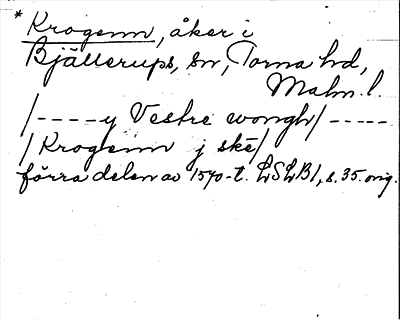 * Krogenn, åker i
Bjällerups, sn, Torna hd,
Malm. l.
/----y Vestre wongh/-----
/Krogenn j ské/
förra delen av 1570-t. LSLB1, s. 35. orig.